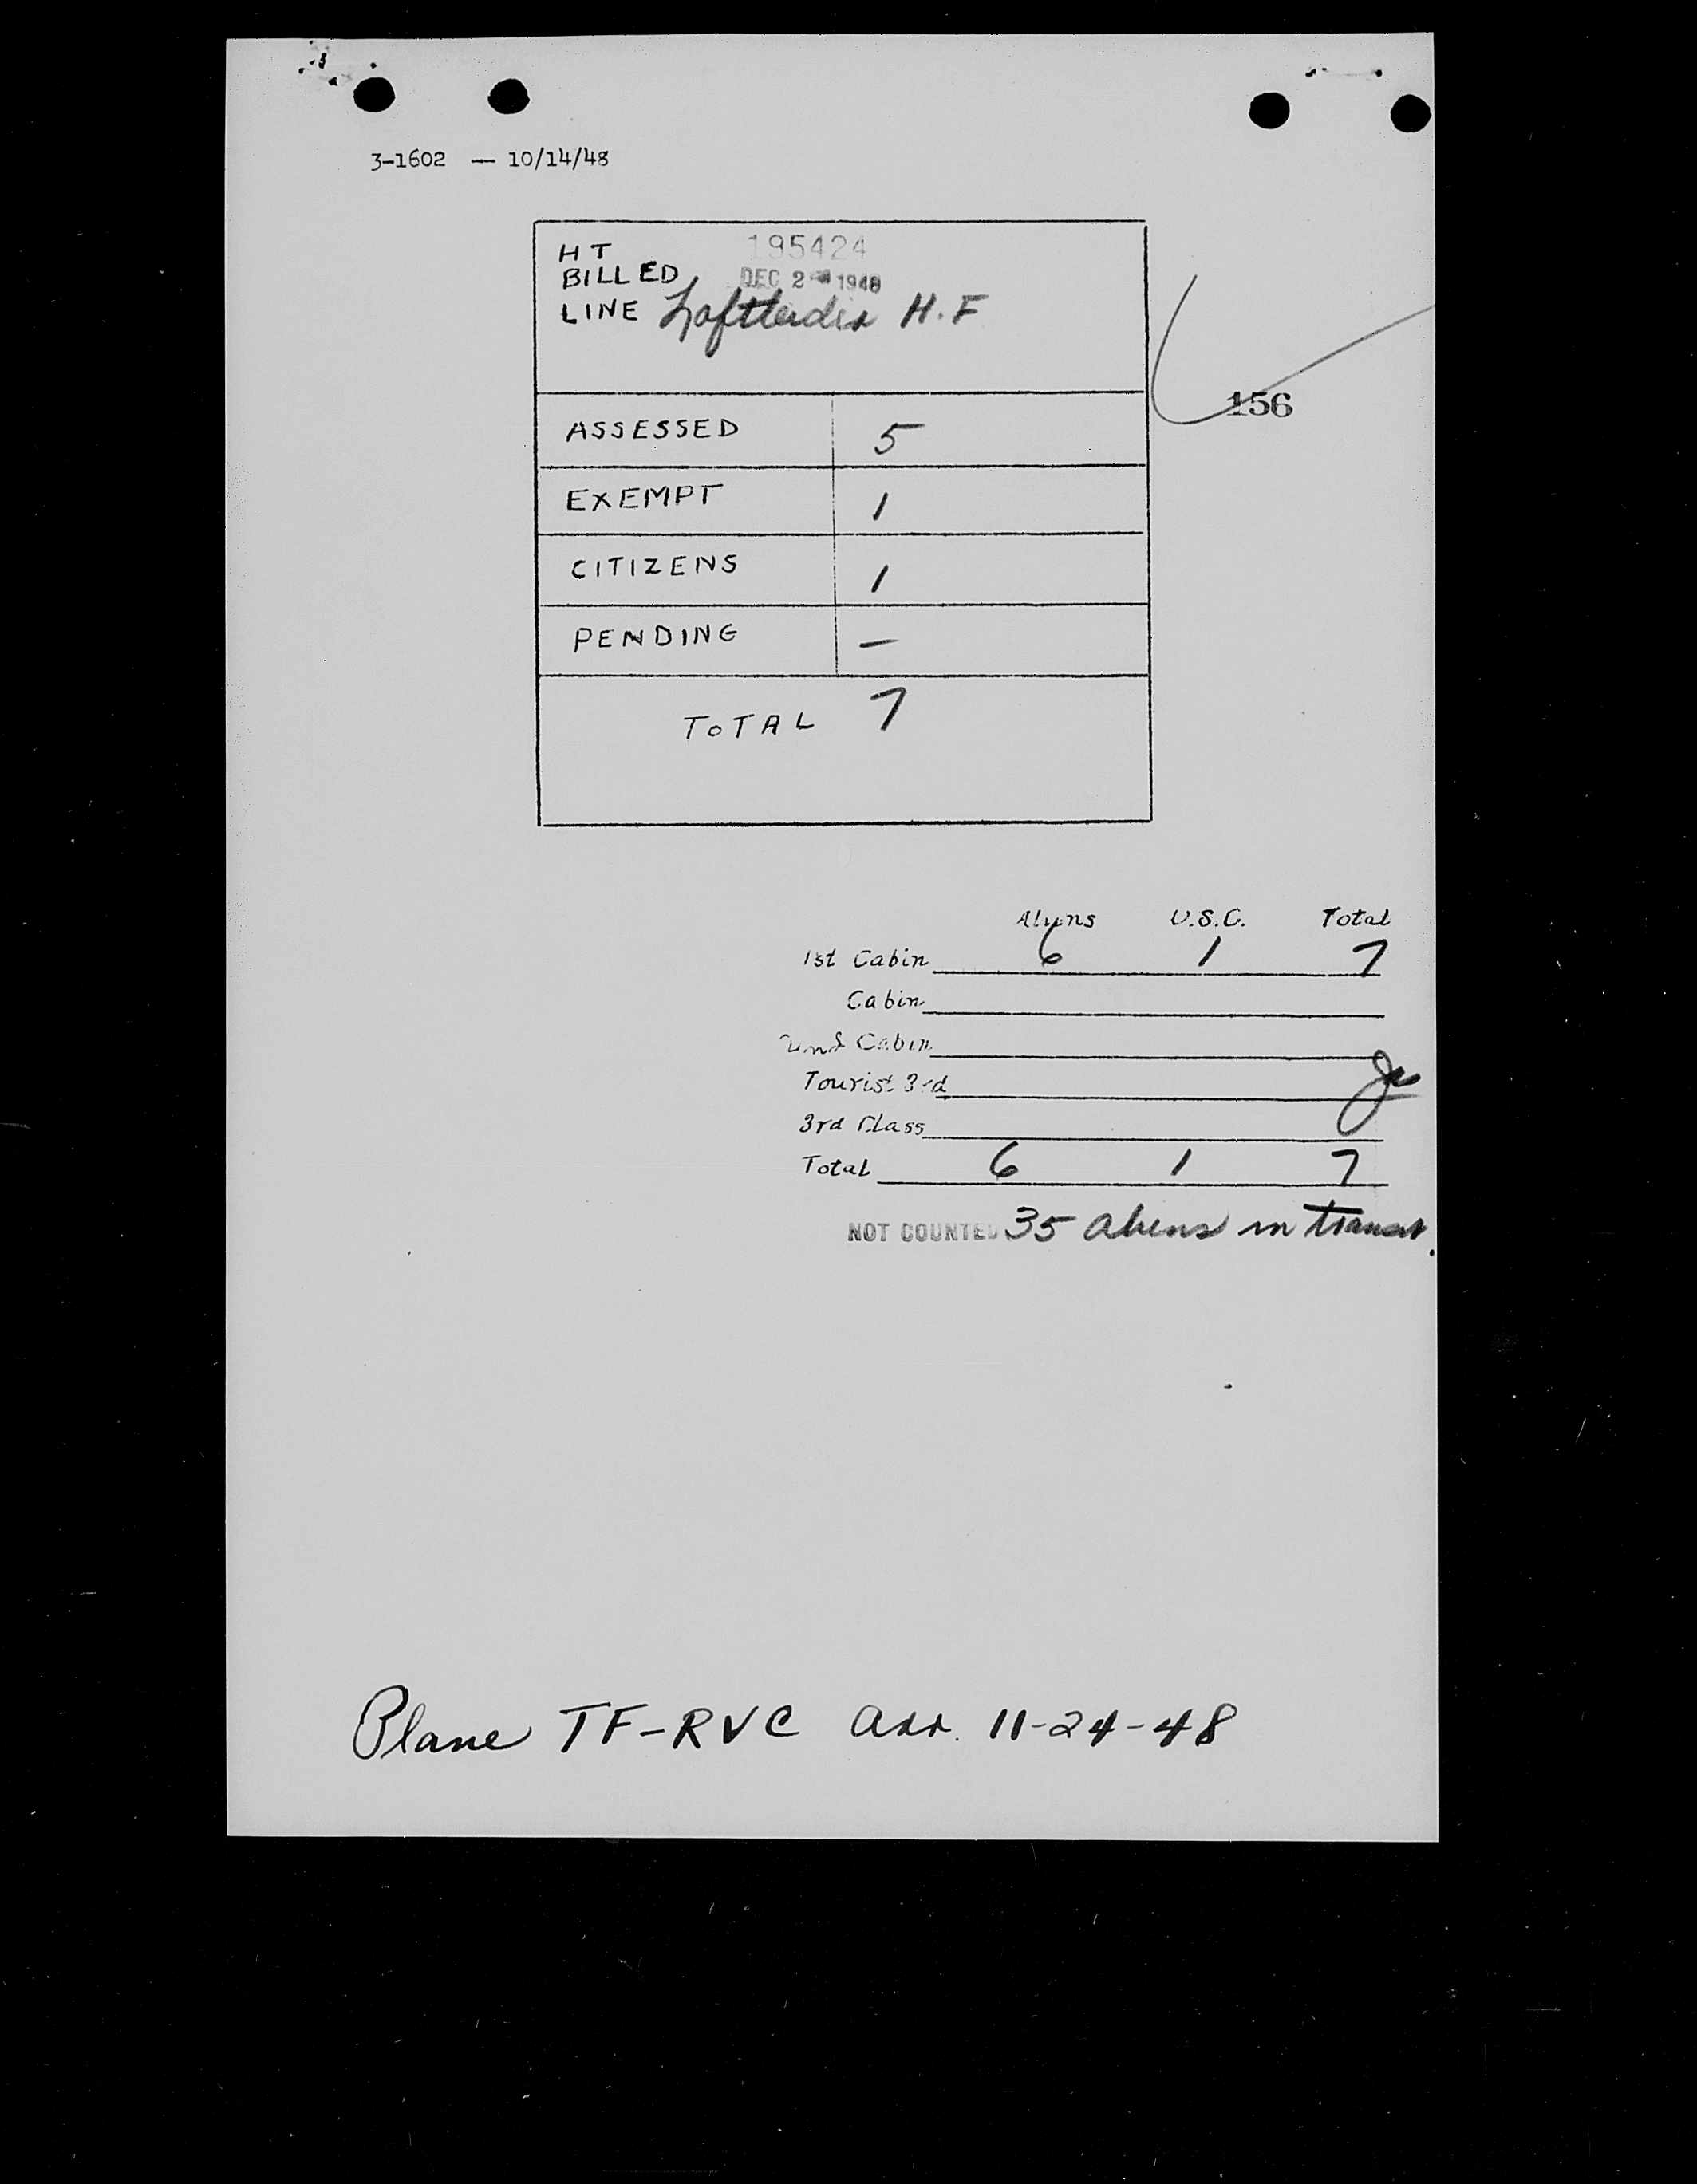 3-1602 — 10/14/48
HT 195424
BILLED DEC 2 1948
LINE Loftleidir H.F
156
ASSESSED 5
EXEMPT 1
CITIZENS 1
PENDING —
TOTAL 7
Aliens U.S.C. Total
1st Cabin 6 1 7
Cabin
2nd Cabin
Tourist 3rd
3rd Class
Total 6 1 7
NOT COUNTED 35 aliens in transit.
Plane TF-RVC arr. 11-24-48